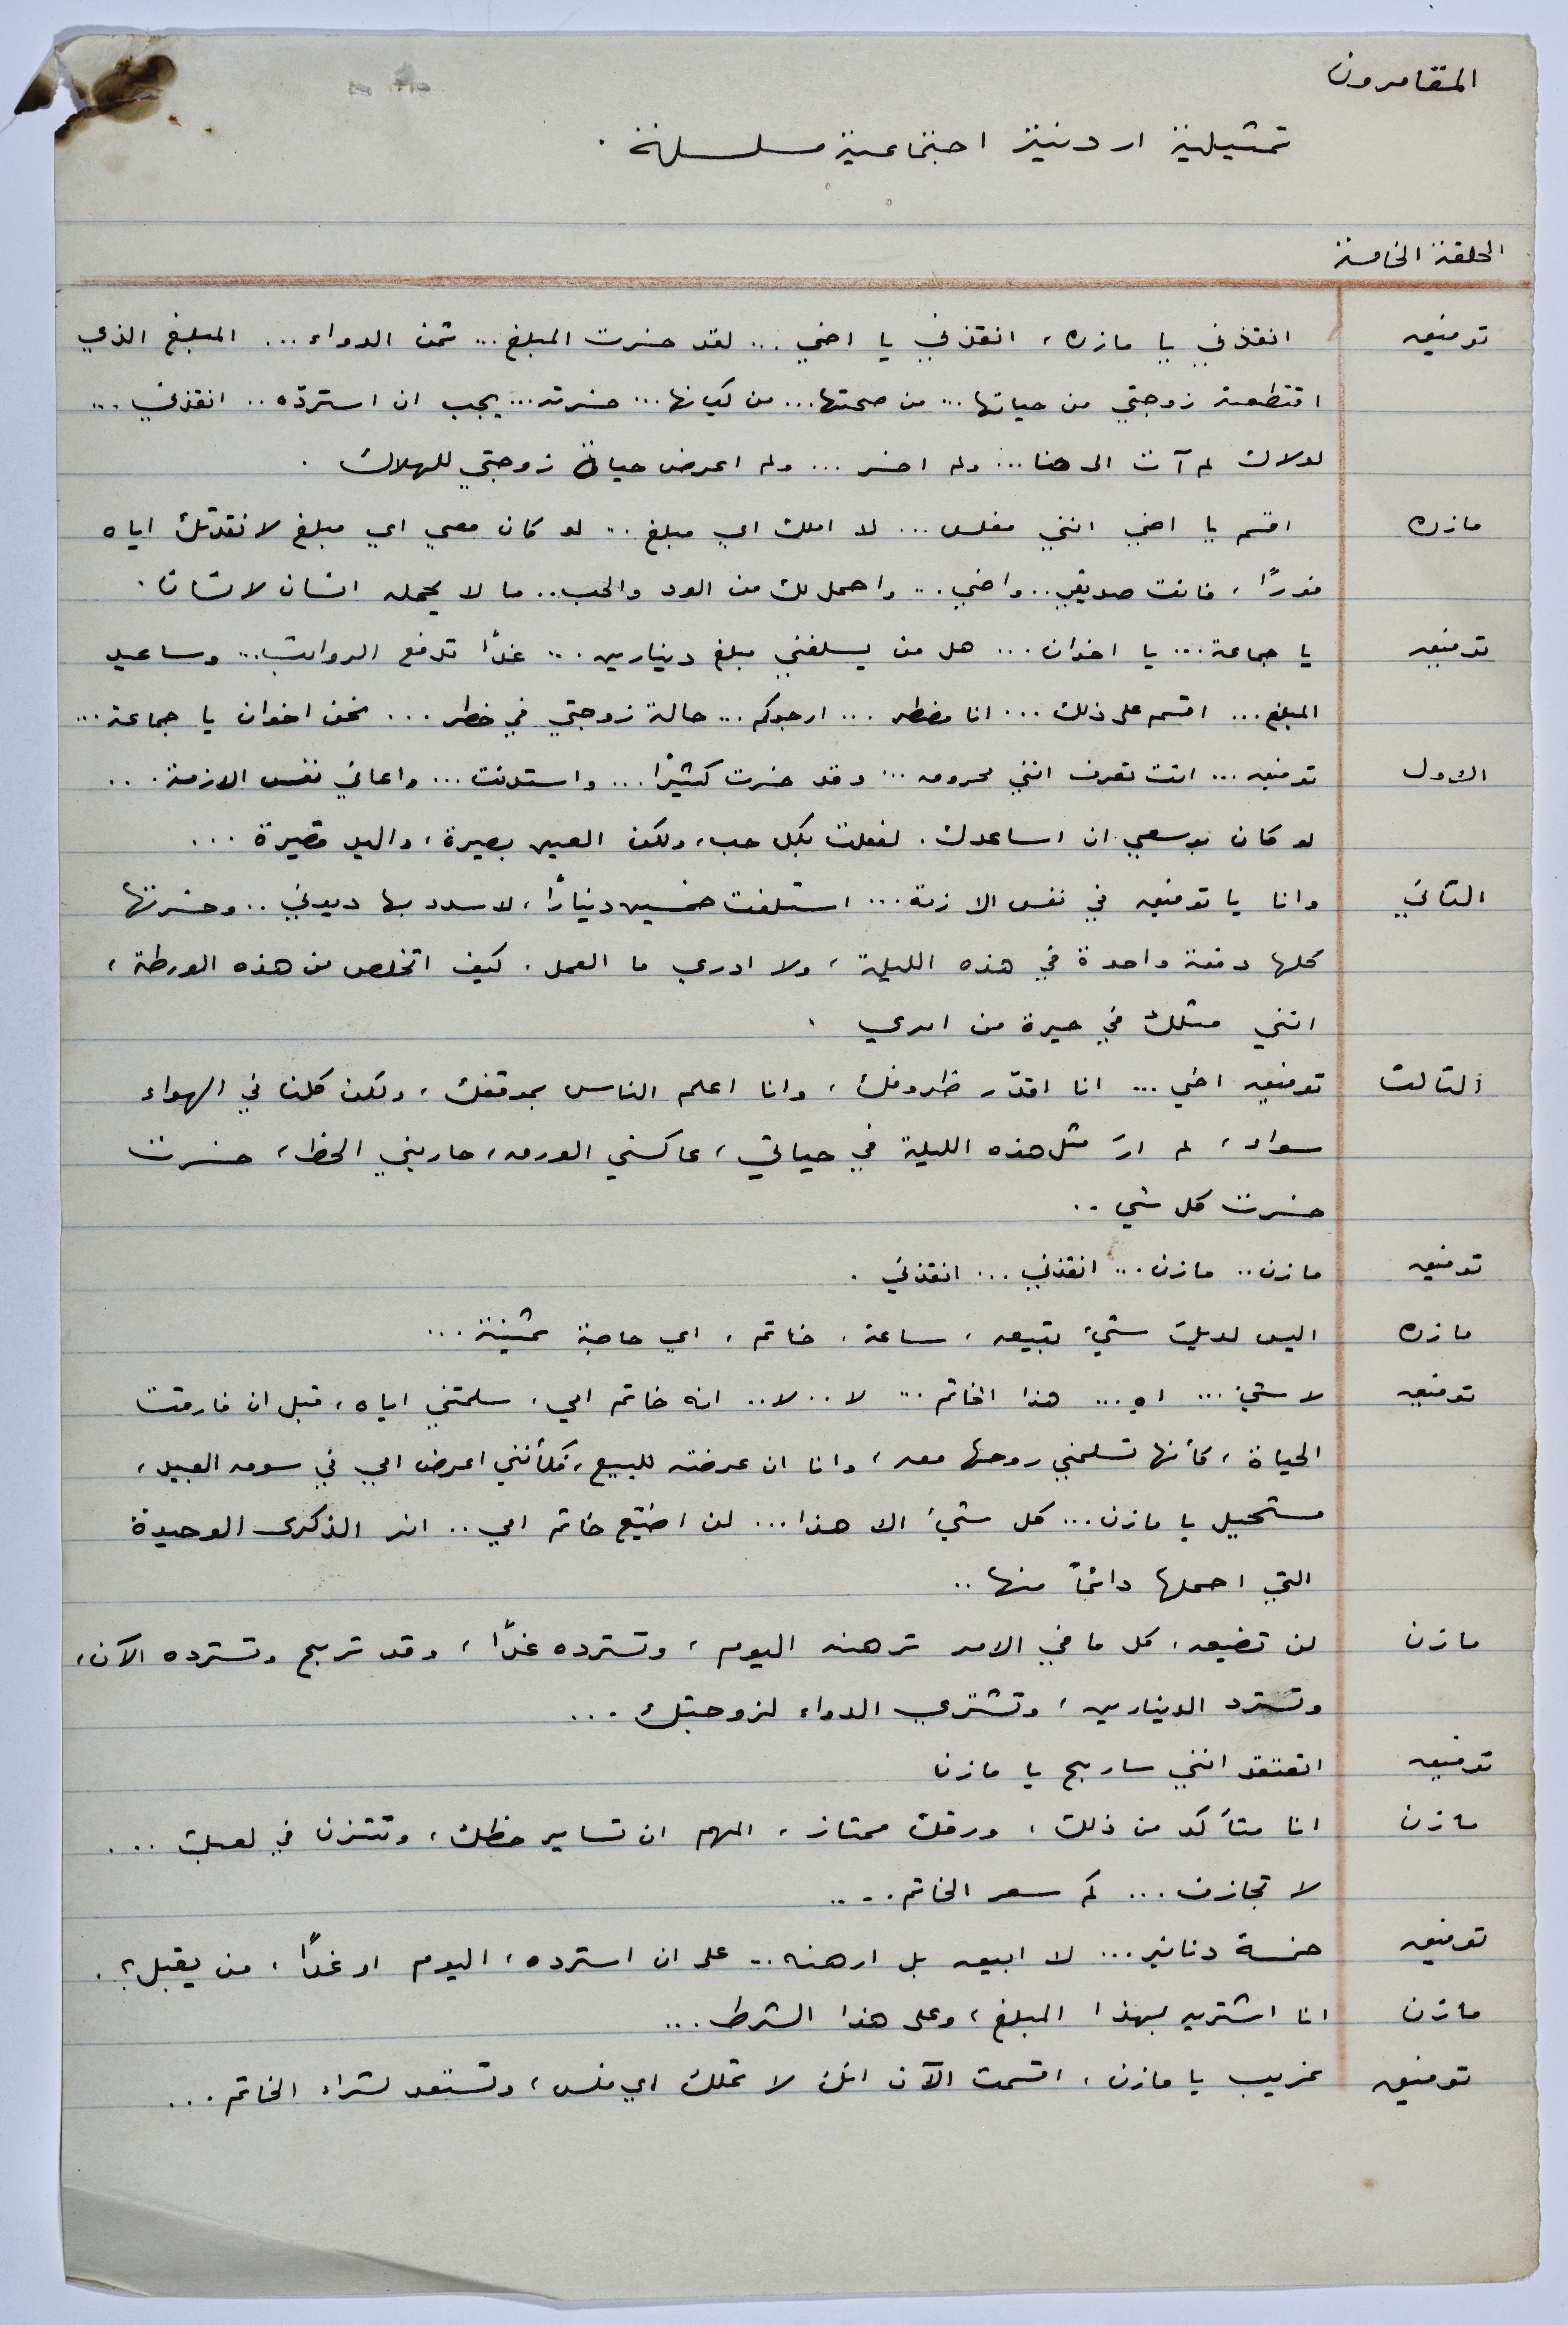 المقامرون
تمثيلية اردنية اجتماعية مسلسلة .
الحلقة الخامسة
توفيق انقذني يا مازن ، انقذني يا اخي ... لقد خسرت المبلغ ... ثمن الدواء ... المبلغ الذي
اقتطعته زوجتي من حياتها ... من صحتها ... من كيانها ... خسرته ... يجب ان استردّه .. انقذني ...
لولاك لم آت الى هنا ... ولم اخسر ... ولم اعرض حياة زوجتي للهلاك .
مازن اقسم يا اخي انني مفلس ... لا املك اي مبلغ .. لو كان معي اي مبلغ لانقدتك اياه
فورًا ، فانت صديقي .. واخي .. واحمل لك من الود والحب .. ما لا يحمله انسان لانسان .
توفيق يا جماعة ... يا اخوان ... هل من يسلفني مبلغ دينارين ... غدًا تدفع الرواتب ... وساعيد
المبلغ ... اقسم على ذلك ... انا مضطر ... ارجوكم ... حالة زوجتي في خطر ... نحن اخوان يا جماعة ...
الاول توفيق ... انت تعرف انني محروق ... وقد خسرت كثيرًا ... واستدنت ... واعاني نفس الازمة ...
لو كان بوسعي ان اساعدك . لفعلت بكل حب ، ولكن العين بصيرة ، واليد قصيرة ...
الثاني وانا يا توفيق في نفس الازمة ... استلفت خمسين دينارًا ، لاسدد بها ديوني .. وخسرتها
كلها دفعة واحدة في هذه الليلة ، ولا ادري ما العمل . كيف اتخلص من هذه الورطة ،
انني مثلك في حيرة من امري .
الثالث توفيق اخي ... انا اقدّر ظروفك ، وانا اعلم الناس بموقفك ، ولكن كلنا في الهواء
سواء ، لم ارَ مثل هذه الليلة في حياتي ، عاكسني الورق ، حاربني الحظ ، خسرت
خسرت كل شي ..
توفيق مازن .. مازن ... انقذني ... انقذني .
مازن اليس لديك شيء تبيعه ، ساعة ، خاتم ، اي حاجة ثمينة ...
توفيق لا شيء ... اهٍ ... هذا الخاتم ... لا .. لا .. انه خاتم امي . سلمتني اياه ، قبل ان فارقت
الحياة ، كأنها تسلمني روحها معه ، وانا ان عرضته للبيع ، كأنني اعرض امي في سوق العبيد ،
مستحيل يا مازن ... كل شيء الا هذا ... لن اضيّع خاتم امي .. انه الذكرى الوحيدة
التي احملها دائمًا منها ..
مازن لن تضيعه ، كل ما في الامر ترهنه اليوم ، وتسترده غدًا ، وقد تربح وتسترده الآن ،
وتسترد الدينارين ، وتشتري الدواء لزوجتك ...
توفيق اتعتقد انني ساربح يا مازن
مازن انا متأكد من ذلك ، ورقك ممتاز ، المهم ان تساير حظك ، وتتزن في لعبك ...
لا تجازف ... كم سعر الخاتم ....
توفيق خمسة دنانير ... لا ابيعه بل ارهنه .. على ان استرده ، اليوم او غدًا ، من يقبل ؟ .
مازن انا اشتريه بهذا المبلغ ، وعلى هذا الشرط ...
توفيق غريب يا مازن ، اقسمت الآن انك لا تملك اي فلس ، وتستعد لشراء الخاتم ...